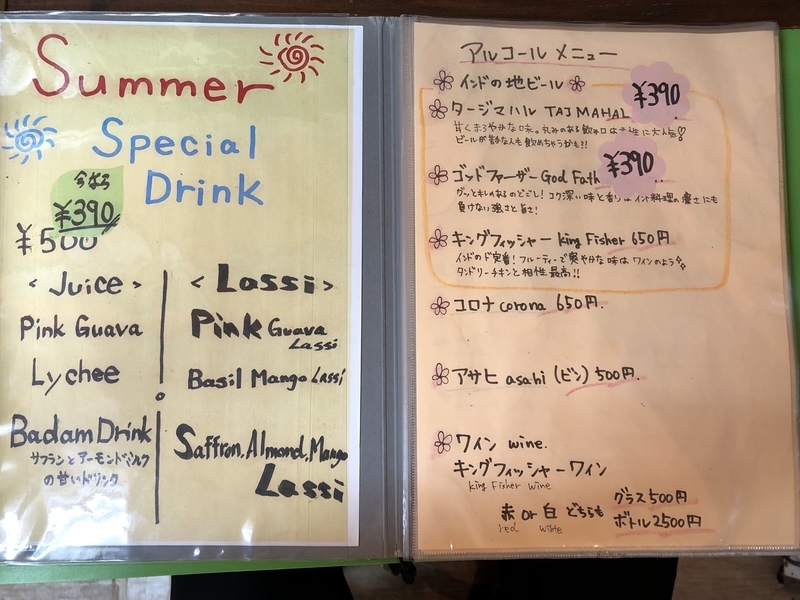 Summer
Special
Drink
今なら
¥390
¥500
<Juice>
Pink Guava
Lychee
Badam Drink
サフランとアーモンドミルク
の甘いドリンク
<Lassi>
Pink Guava
Lassi
Basil Mango Lassi
Saffron, Almond, Mango
Lassi
アルコールメニュー
インドの地ビール
¥390
タージマハル TAJ MAHAL
甘くまろやかな味。丸みのある飲み口は女性に大人気!
ビールが苦手な人も飲めちゃうかも?!
¥390
ゴッドファーザー God Fath
グッとキレのあるのどごし!コク深い味と香りはインド料理の濃さにも
負けない強さと旨さ!
キングフィッシャー King Fisher 650円
インドのド定番!フルーティーで爽やかな味はワインのよう
タンドリーチキンと相性最高!!
コロナ corona 650円.
アサヒ asahi (ビン) 500円.
ワイン wine.
キングフィッシャーワイン
King Fisher wine
赤 or 白 どちらも
red wite
グラス 500円
ボトル 2500円